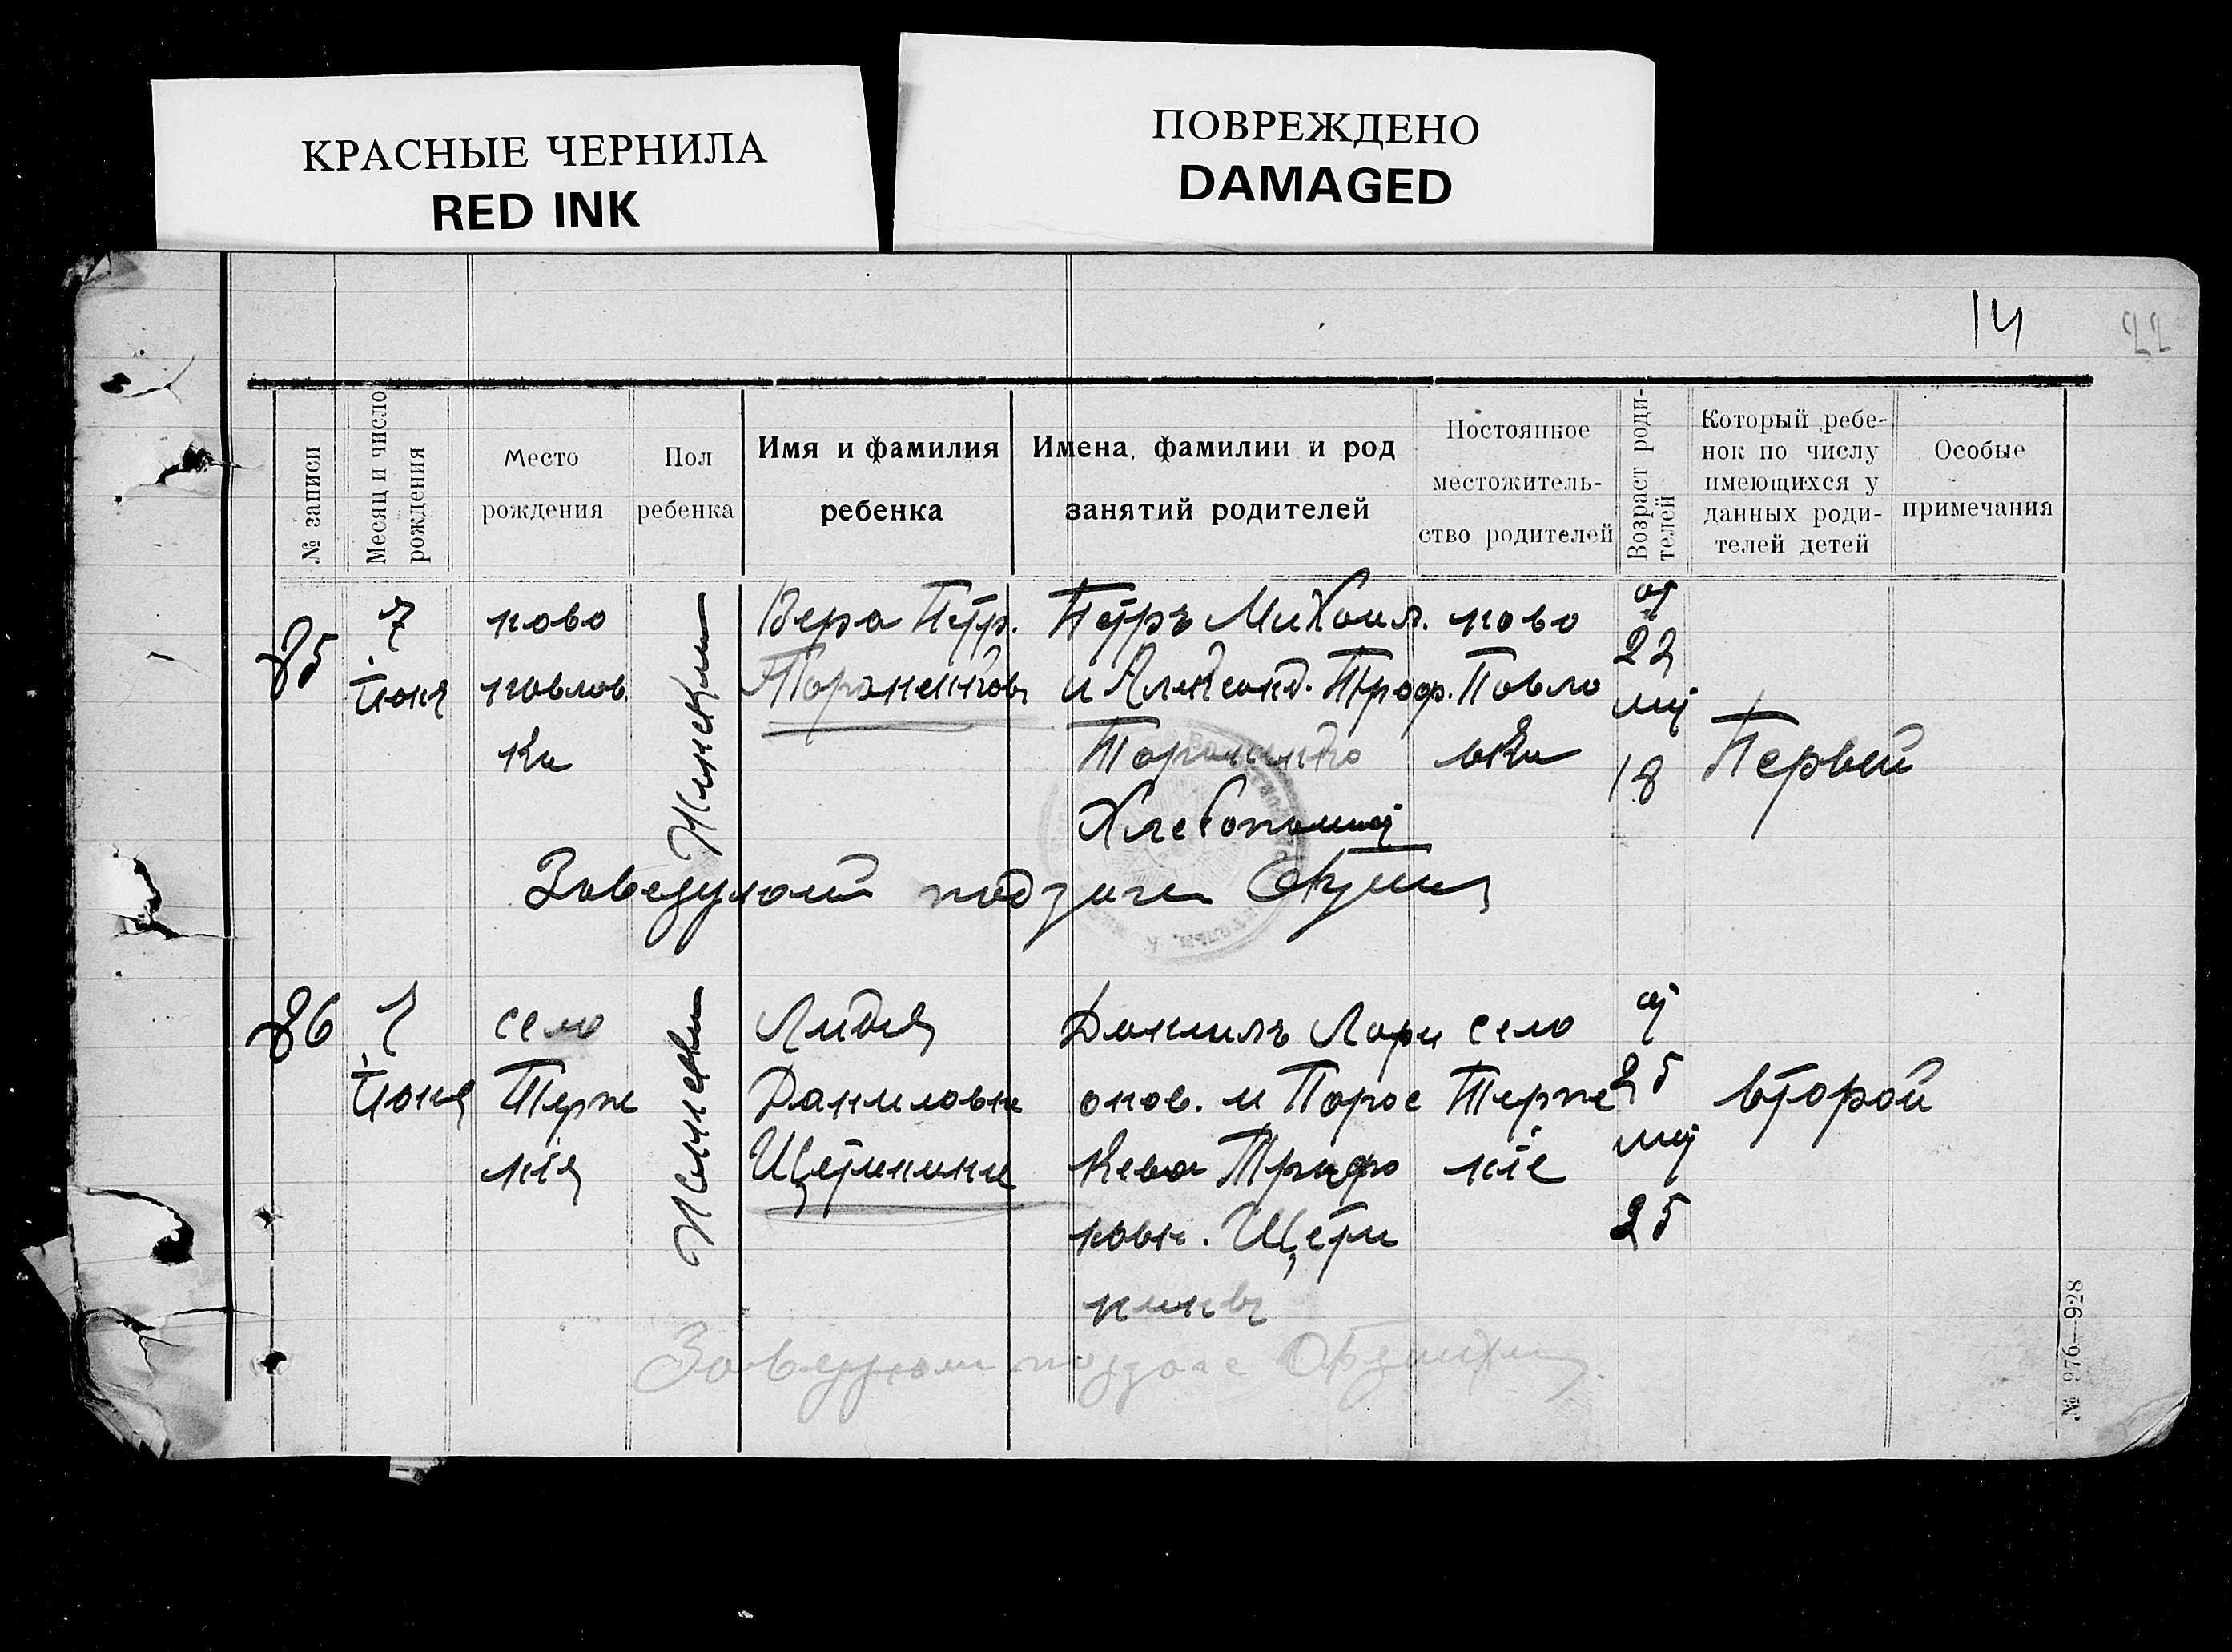 КРАСНЫЕ ЧЕРНИЛА
RED INK
ПОВРЕЖДЕНО
DAMAGED
14
22
№ записи
Месяц и число рождения
Место рождения
Пол ребенка
Имя и фамилия ребенка
Имена, фамилии и род занятий родителей
Постоянное местожительство родителей
Возраст родителей
Который ребенок по числу имеющихся у данных родителей детей
Особые примечания
85
7
Июня
ново
павлов.
ка
Женски
Вера Петр.
Петръ Михаил.
и Александ. Троф.
ново
Павло
вка
от
22
мт
18
Первый
86
7
Июня
село
Терпе
нія
Женски
Лидия
Даниловна
Щетинина
Данилъ Лари
онов. и Парас
кева Трифо
новн. Щети
нины
село
Терпе
ніе
от
25
мт
25
второй
№ 976—928